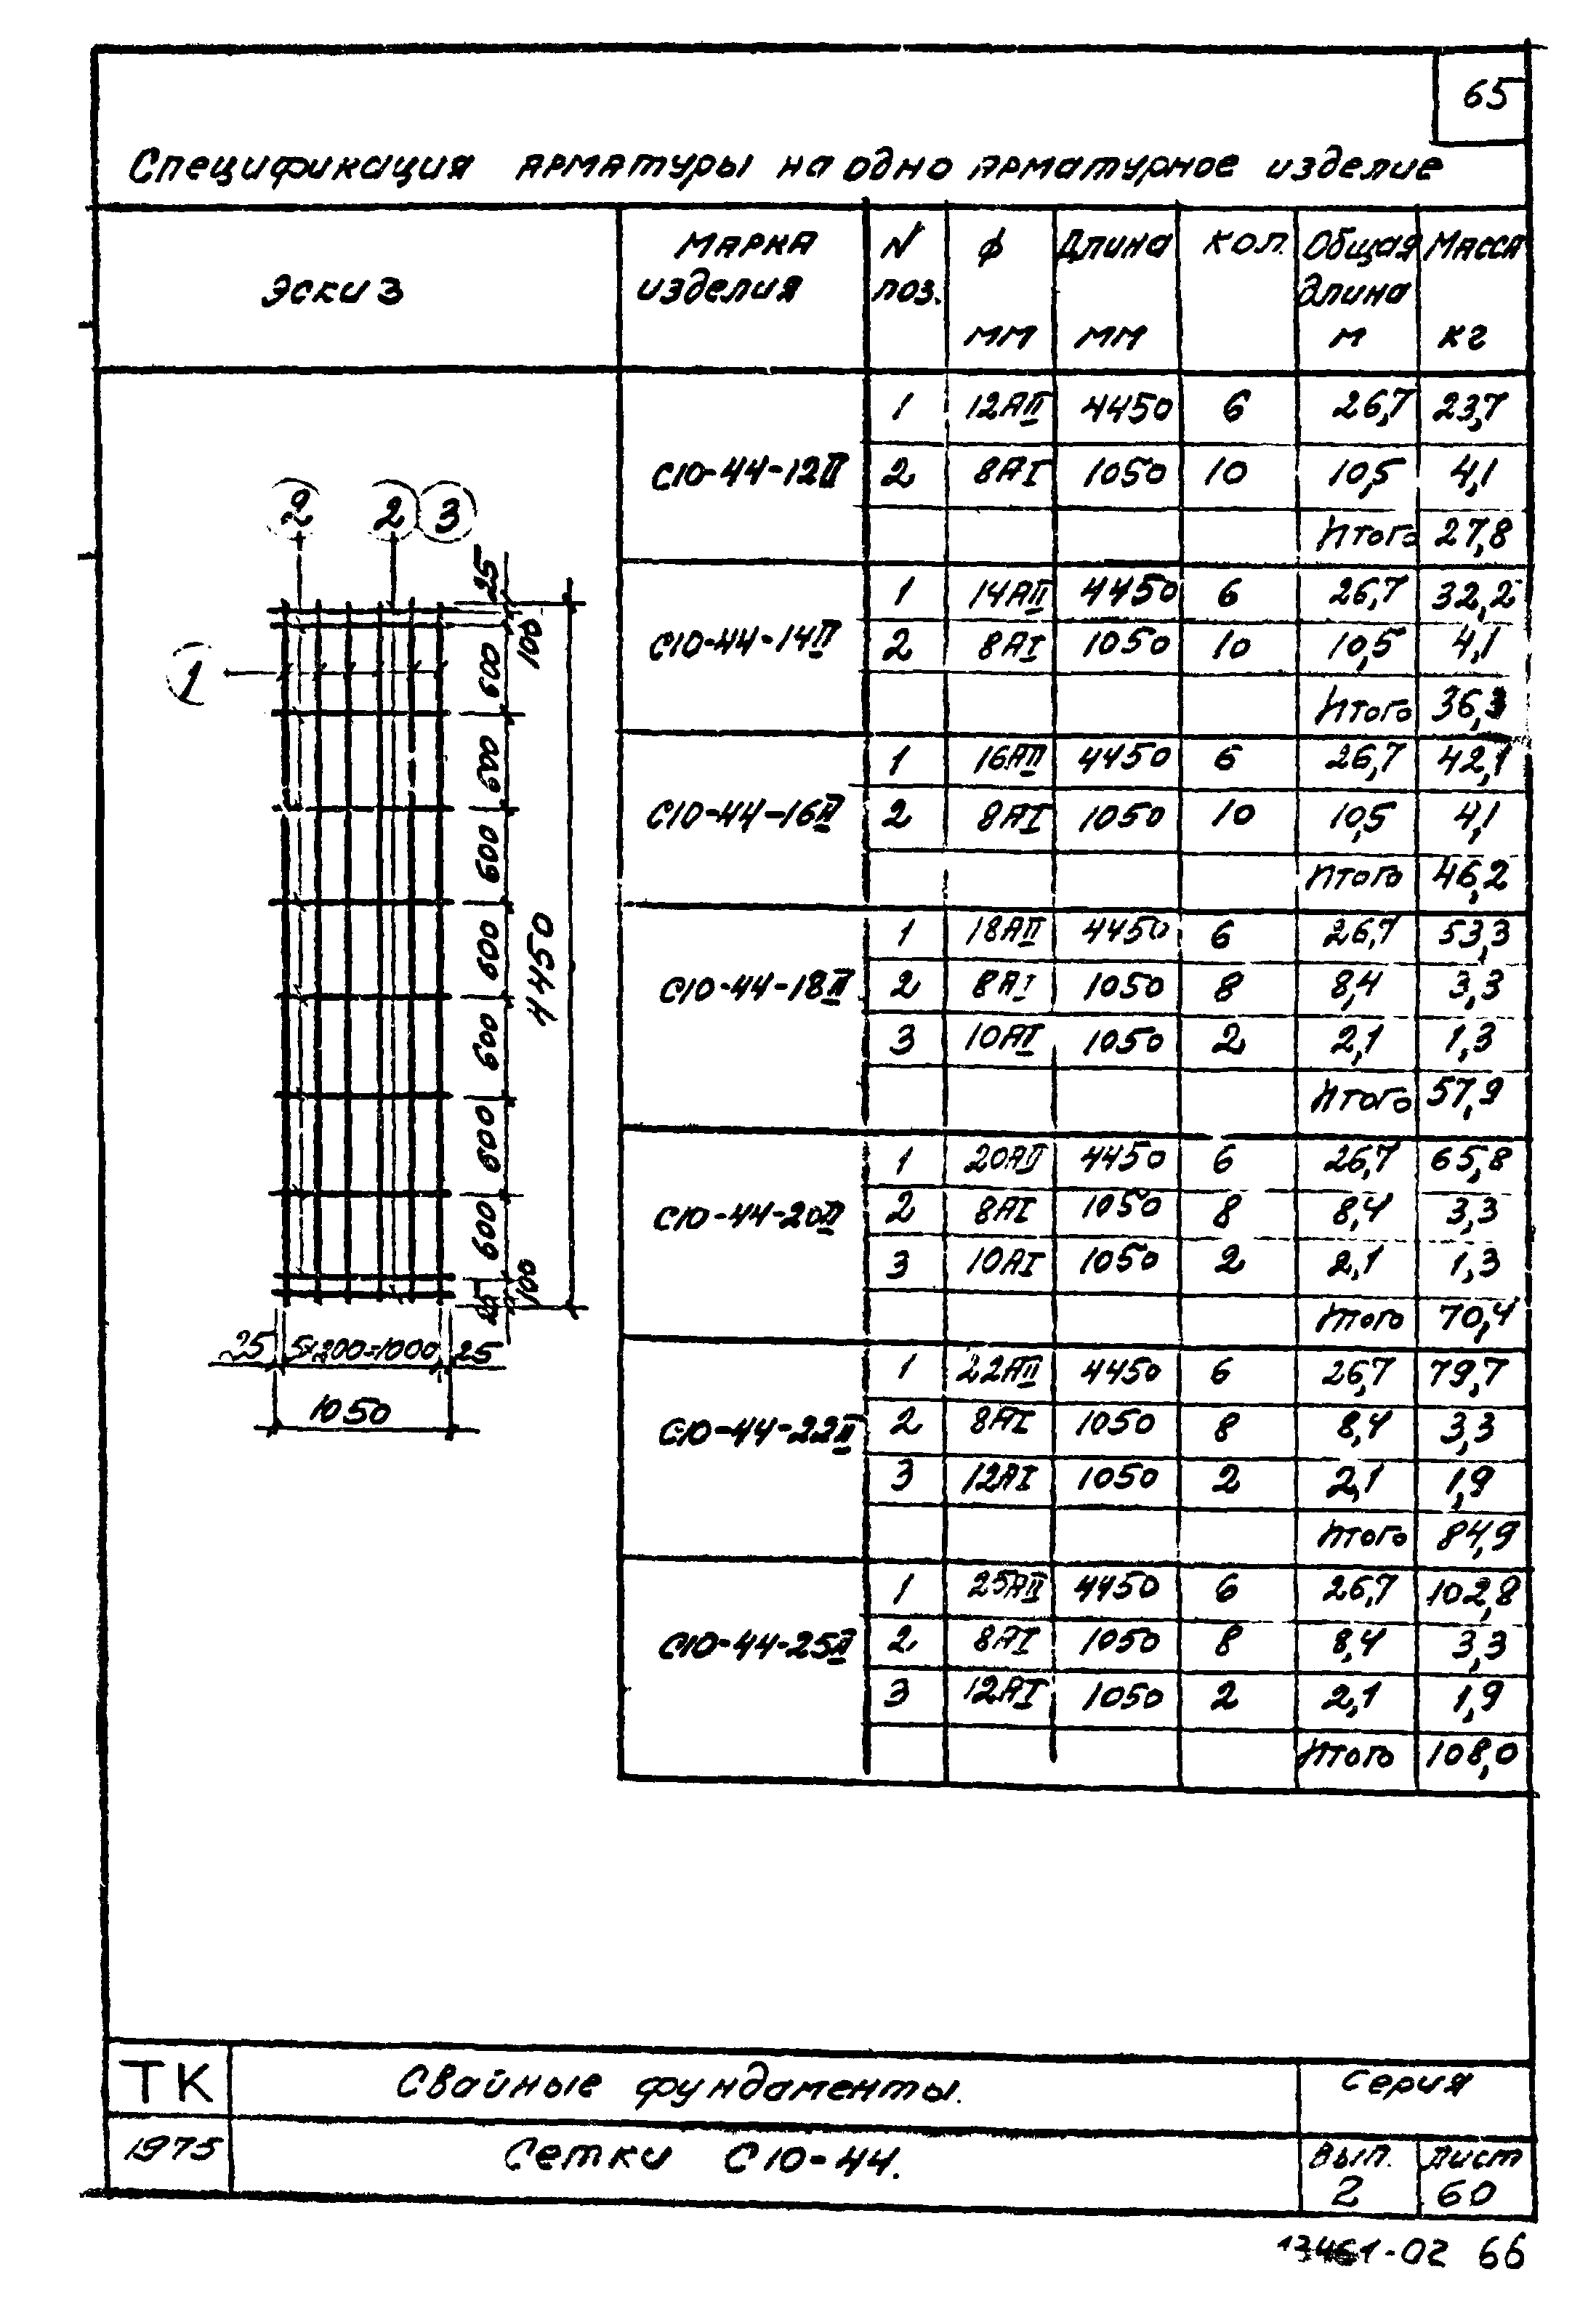 65
Спецификация арматуры на одно арматурное изделие
Эскиз
Марка изделия
N поз.
ф мм
Длина мм
кол.
Общая длина м
Масса кг
С10-44-12II
1 12АII 4450 6 26,7 23,7
2 8АI 1050 10 10,5 4,1
Итого 27,8
С10-44-14II
1 14АII 4450 6 26,7 32,2
2 8АI 1050 10 10,5 4,1
Итого 36,3
С10-44-16II
1 16АII 4450 6 26,7 42,1
2 8АI 1050 10 10,5 4,1
Итого 46,2
С10-44-18II
1 18АII 4450 6 26,7 53,3
2 8АI 1050 8 8,4 3,3
3 10АI 1050 2 2,1 1,3
Итого 57,9
С10-44-20II
1 20АII 4450 6 26,7 65,8
2 8АI 1050 8 8,4 3,3
3 10АI 1050 2 2,1 1,3
Итого 70,4
С10-44-22II
1 22АII 4450 6 26,7 79,7
2 8АI 1050 8 8,4 3,3
3 12АI 1050 2 2,1 1,9
Итого 84,9
С10-44-25II
1 25АII 4450 6 26,7 102,8
2 8АI 1050 8 8,4 3,3
3 12АI 1050 2 2,1 1,9
Итого 108,0
2 2 3
1
25
100
600
600
600
600
600
600
600
100
25
4450
25 5×200=1000 25
1050
ТК
Свайные фундаменты.
Серия
1975
Сетки С10-44.
Вып. 2
Лист 60
13461-02 66